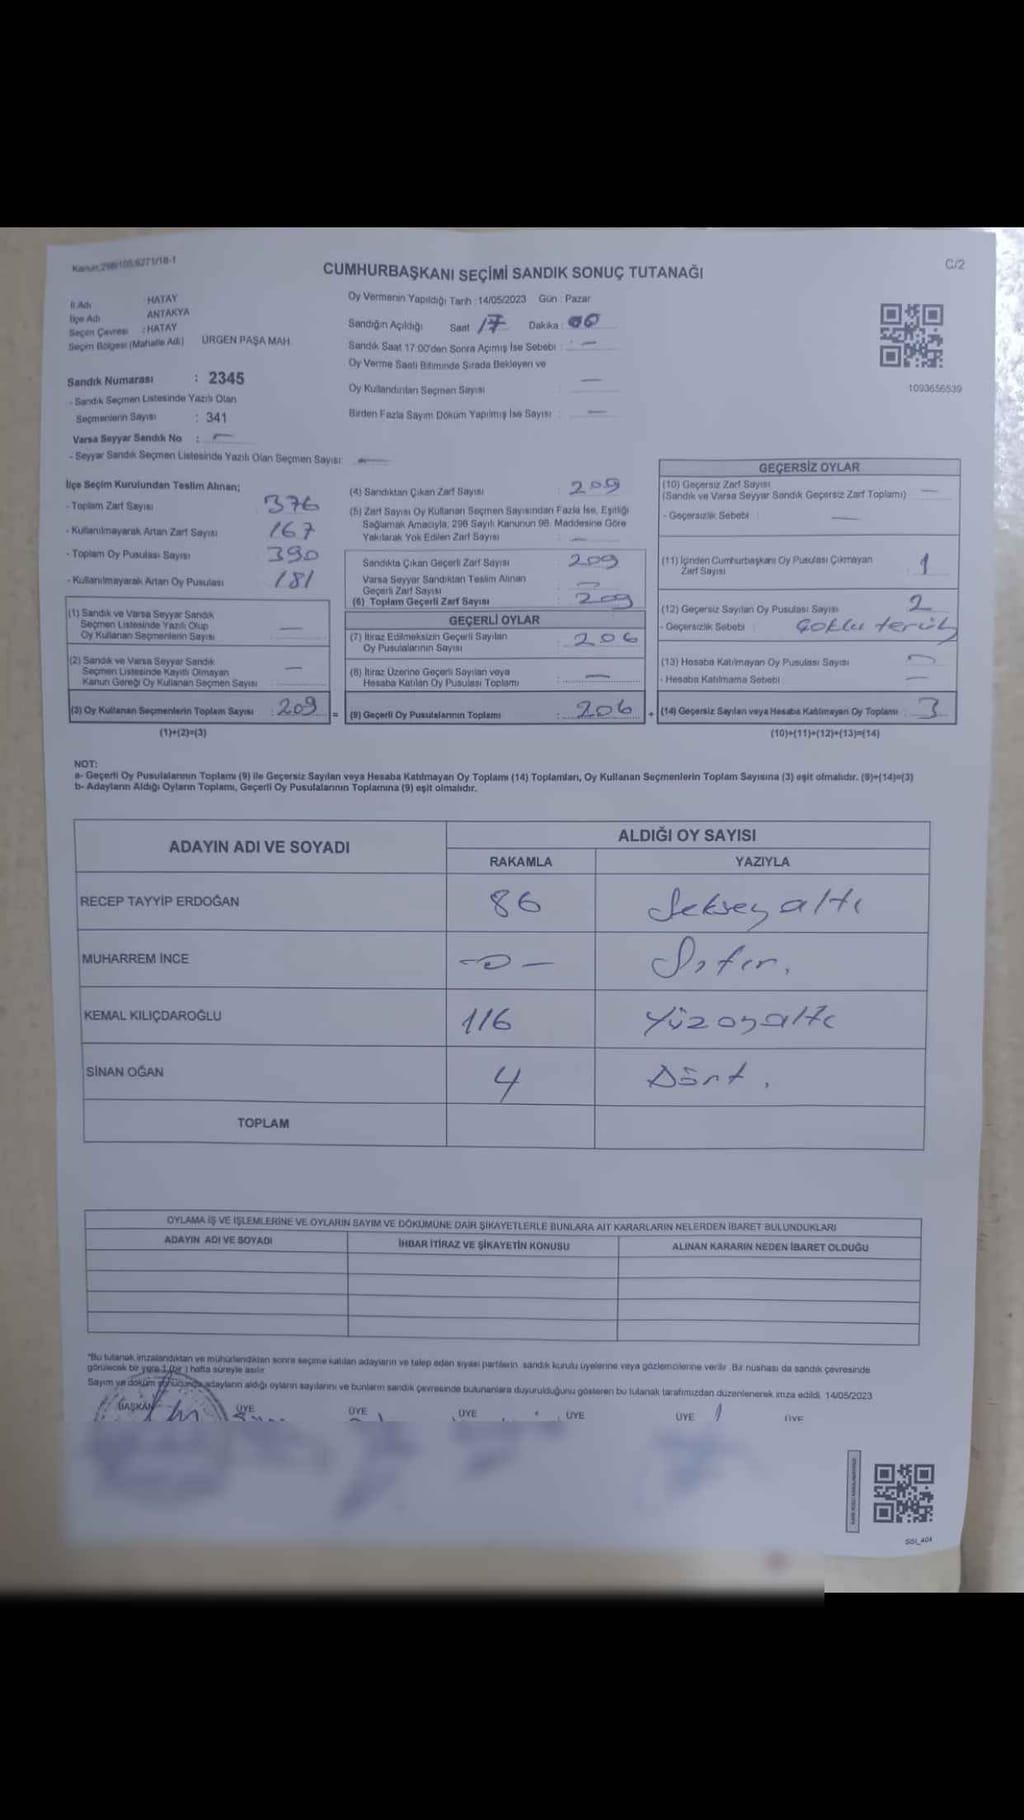 Kanun:298/105,6271/18-1
C/2
CUMHURBAŞKANI SEÇİMİ SANDIK SONUÇ TUTANAĞI
İl Adı HATAY
İlçe Adı ANTAKYA
Seçim Çevresi : HATAY
Seçim Bölgesi (Mahalle Adı) ÜRGEN PAŞA MAH.
Sandık Numarası : 2345
- Sandık Seçmen Listesinde Yazılı Olan
Seçmenlerin Sayısı : 341
Varsa Seyyar Sandık No : —
- Seyyar Sandık Seçmen Listesinde Yazılı Olan Seçmen Sayısı: —
Oy Vermenin Yapıldığı Tarih : 14/05/2023 Gün : Pazar
Sandığın Açıldığı Saat 17 Dakika : 00
Sandık Saat 17:00'den Sonra Açımış İse Sebebi : —
Oy Verme Saati Bitiminde Sırada Bekleyen ve
Oy Kullandırılan Seçmen Sayısı —
Birden Fazla Sayım Döküm Yapılmış İse Sayısı : —
1093656539
İlçe Seçim Kurulundan Teslim Alınan;
- Toplam Zarf Sayısı 376
- Kullanılmayarak Artan Zarf Sayısı 167
- Toplam Oy Pusulası Sayısı 390
- Kullanılmayarak Artan Oy Pusulası 181
(1) Sandık ve Varsa Seyyar Sandık
Seçmen Listesinde Yazılı Olup
Oy Kullanan Seçmenlerin Sayısı —
(2) Sandık ve Varsa Seyyar Sandık
Seçmen Listesinde Kayıtlı Olmayan
Kanun Gereği Oy Kullanan Seçmen Sayısı —
(3) Oy Kullanan Seçmenlerin Toplam Sayısı : 209
(1)+(2)=(3)
(4) Sandıktan Çıkan Zarf Sayısı : 209
(5) Zarf Sayısı Oy Kullanan Seçmen Sayısından Fazla İse, Eşitliği
Sağlamak Amacıyla, 298 Sayılı Kanunun 98. Maddesine Göre
Yakılarak Yok Edilen Zarf Sayısı : —
Sandıkta Çıkan Geçerli Zarf Sayısı : 209
Varsa Seyyar Sandıktan Teslim Alınan
Geçerli Zarf Sayısı : —
(6) Toplam Geçerli Zarf Sayısı 209
GEÇERLİ OYLAR
(7) İtiraz Edilmeksizin Geçerli Sayılan
Oy Pusulalarının Sayısı : 206
(8) İtiraz Üzerine Geçerli Sayılan veya
Hesaba Katılan Oy Pusulası Toplamı : —
= (9) Geçerli Oy Pusulalarının Toplamı : 206
GEÇERSİZ OYLAR
(10) Geçersiz Zarf Sayısı
(Sandık ve Varsa Seyyar Sandık Geçersiz Zarf Toplamı) : —
- Geçersizlik Sebebi : —
(11) İçinden Cumhurbaşkanı Oy Pusulası Çıkmayan
Zarf Sayısı : 1
(12) Geçersiz Sayılan Oy Pusulası Sayısı 2
- Geçersizlik Sebebi :
(13) Hesaba Katılmayan Oy Pusulası Sayısı —
- Hesaba Katılmama Sebebi : —
+ (14) Geçersiz Sayılan veya Hesaba Katılmayan Oy Toplamı : 3
(10)+(11)+(12)+(13)=(14)
NOT:
a- Geçerli Oy Pusulalarının Toplamı (9) ile Geçersiz Sayılan veya Hesaba Katılmayan Oy Toplamı (14) Toplamları, Oy Kullanan Seçmenlerin Toplam Sayısına (3) eşit olmalıdır. (9)+(14)=(3)
b- Adayların Aldığı Oyların Toplamı, Geçerli Oy Pusulalarının Toplamına (9) eşit olmalıdır.
ADAYIN ADI VE SOYADI
ALDIĞI OY SAYISI
RAKAMLA YAZIYLA
RECEP TAYYİP ERDOĞAN 86 Seksen altı
MUHARREM İNCE —0— Sıfır.
KEMAL KILIÇDAROĞLU 116 Yüz on altı
SİNAN OĞAN 4 Dört.
TOPLAM
OYLAMA İŞ VE İŞLEMLERİNE VE OYLARIN SAYIM VE DÖKÜMÜNE DAİR ŞİKAYETLERLE BUNLARA AİT KARARLARIN NELERDEN İBARET BULUNDUKLARI
ADAYIN ADI VE SOYADI İHBAR İTİRAZ VE ŞİKAYETİN KONUSU ALINAN KARARIN NEDEN İBARET OLDUĞU
"Bu tutanak imzalandıktan ve mühürlendikten sonra seçime katılan adayların ve talep eden siyasi partilerin sandık kurulu üyelerine veya gözlemcilerine verilir. Bir nüshası da sandık çevresinde
görülecek bir yere 1 (bir ) hafta süreyle asılır
Sayım ve döküm sonucunda adayların aldığı oyların sayılarını ve bunların sandık çevresinde bulunanlara duyurulduğunu gösteren bu tutanak tarafımızdan düzenlenerek imza edildi. 14/05/2023
BAŞKAN ÜYE ÜYE ÜYE ÜYE ÜYE ÜYE